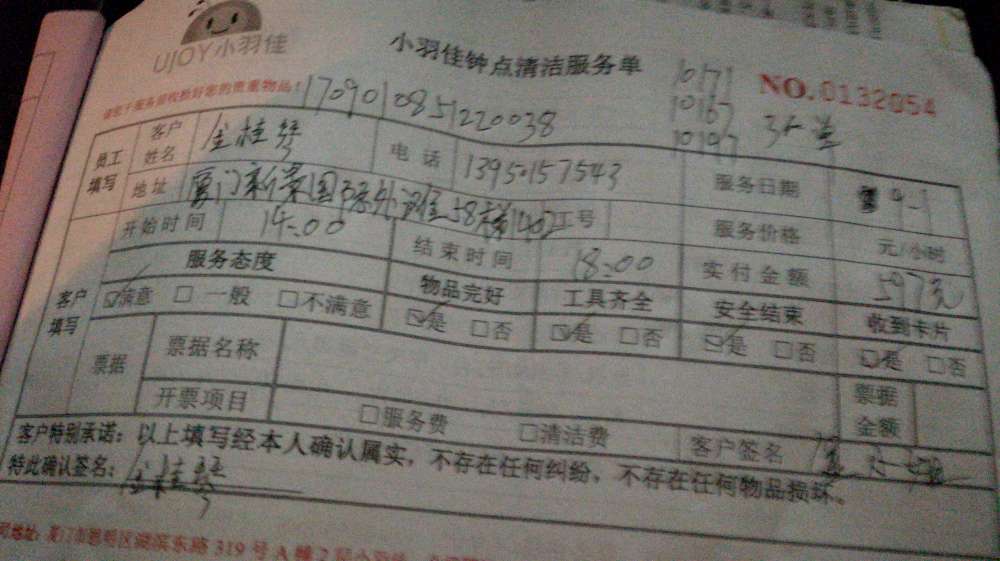 UJOY小羽佳
小羽佳钟点清洁服务单
10171
10167
10197
NO.0132054
请您于服务前收拾好您的贵重物品！
1709010851220038
员工填写
客户姓名 金桂琴 电话 13950157543 服务日期 9-1
地址 厦门新景国际外 58 1402 工号 服务价格 元/小时
开始时间 14:00 结束时间 18:00 实付金额 597元
客户填写
服务态度 物品完好 工具齐全 安全结束 收到卡片
☑满意 □一般 □不满意 ☑是 □否 ☑是 □否 ☑是 □否 ☑是 □否
票据 票据名称 票据金额
开票项目 □服务费 □清洁费 客户签名
客户特别承诺：以上填写经本人确认属实，不存在任何纠纷、不存在任何物品损坏。
特此确认签名：金桂琴
司地址：厦门市思明区湖滨东路319号A幢2层小羽佳